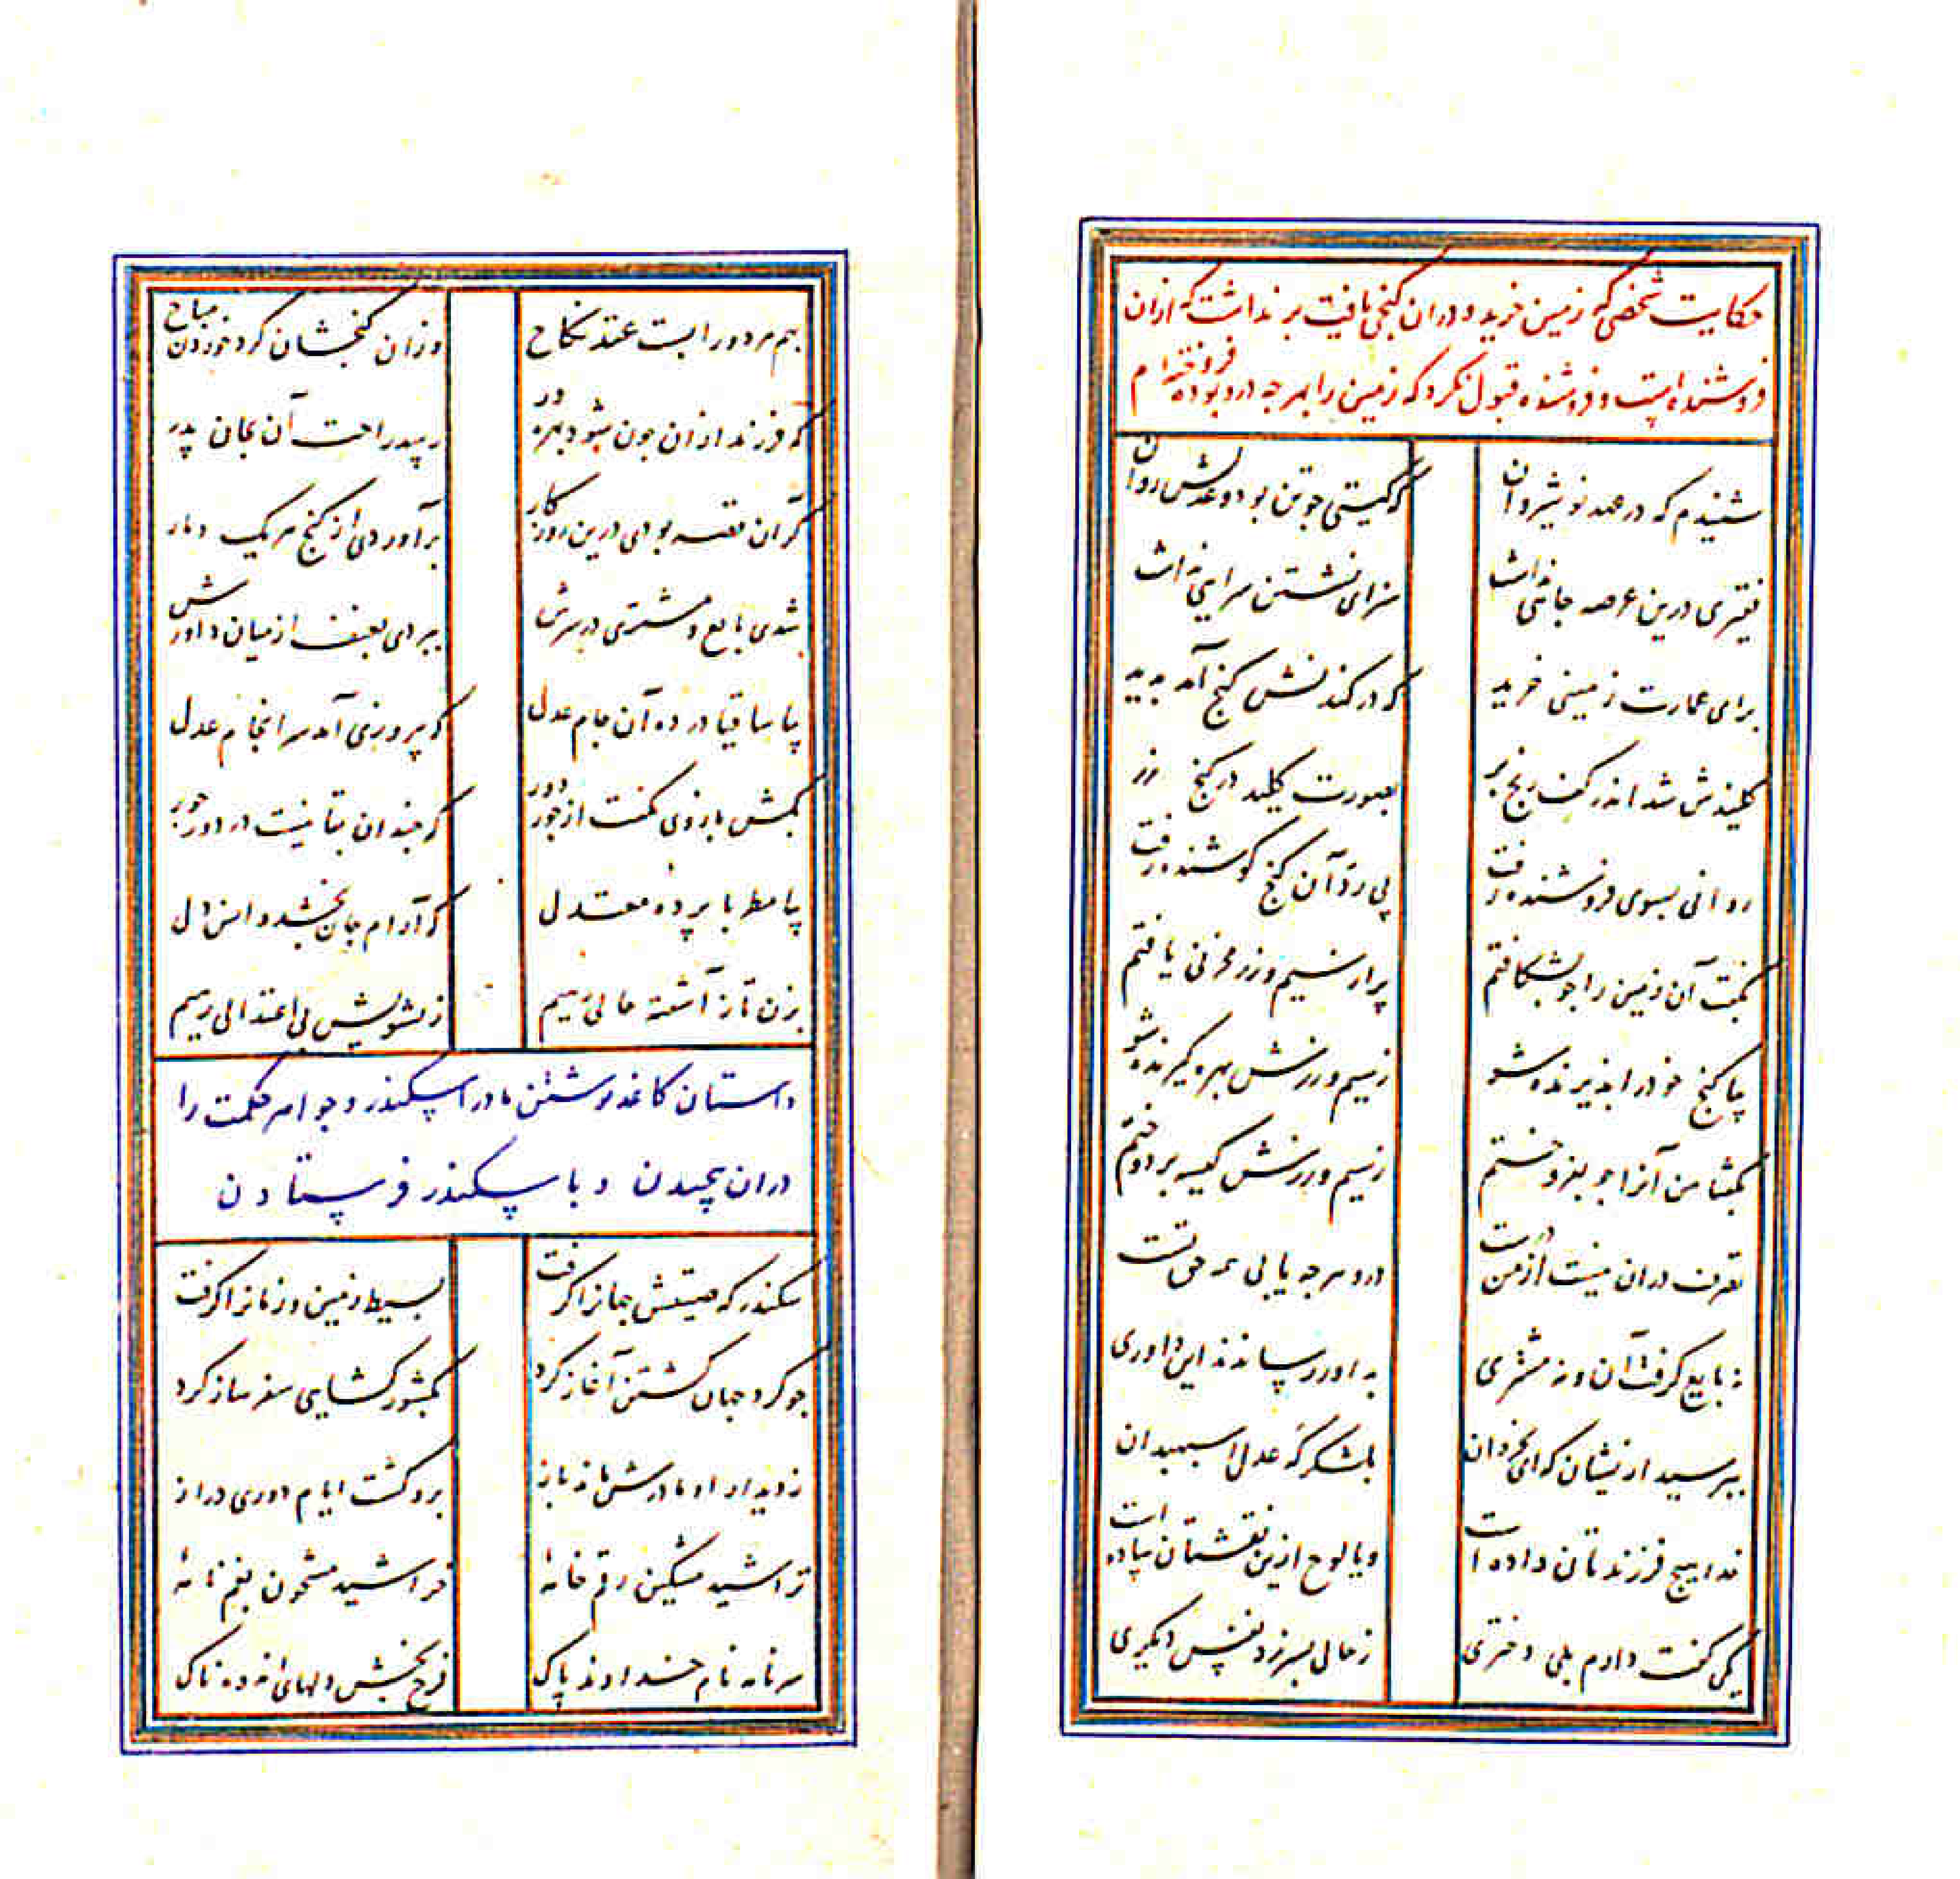 حکایت شخصی که زمین خرید و دران کنجی یافت برنداشت که ازان
فروشنده است و فروشنده قبول نکرد که زمین را بهر جه درو بوده فروخته ام
شنیدم که در عهد نوشیروان که کیتی جو تن بود و عدلش روان
فقیری درین عرصه جائی نداشت سزای نشستن سرایی نداشت
برای عمارت زمینی خرید که در کندنش کنج آمد بدید
کلیدش شد اندر کف رنج بر بصورت کلید در کنج زر
روانی بسوی فروشنده رفت پی رد آن کنج کوشنده رفت
بکفت آن زمین را جو بشکافتم پر از سیم و زر مخزنی یافتم
بیا کنج خود را بذیرنده شو ز سیم و زرش بهره کیرنده شو
بکفتا من آنرا جو بفروختم ز سیم و زرش کیسه بردوختم
تصرف دران نیست از من درست درو هر جه یابی همه حق تست
نه بایع کرفت آن و نه مشتری به داور رسانذند این داوری
ببرسید ازیشان که ای بخردان بلشکرکه عدل اسبهبدان
خدا هیج فرزندتان داده است و یا لوح ازین نقشتان ساده است
یکی کفت دارم بلی دختری ز حالی بسر زد نفس دیکری
بهم هر دو را بست عقد نکاح وزان کنجشان کرد خوردن مباح
که فرزند ازان جون شود بهره ور رسد راحت آن بجان پدر
کر آن قصه بودی درین روزکار برآوردی از کنج هر یک دمار
شدی بایع و مشتری در سرش ببردی بعنف از میان داورش
بیا ساقیا در ده آن جام عدل که پیروزی آمد سرانجام عدل
بکش بازوی کفت از جور دور که جندان بقا نیست در دور جور
بیا مطربا پرده معتدل که آرام جان بخشد و انس دل
بزن تا ز آشفته حالی رهیم ز تشویش بی اعتدالی رهیم
داستان کاغذ نوشتن مادر اسکندر و جواهر حکمت را
دران پیچیدن و با سکندر فرستادن
سکندر که صیتش جهانرا کرفت بسیط زمین و زمانرا کرفت
جو کرد جهان کشتن آغاز کرد بکشور کشایی سفر ساز کرد
ز دیدار او مادرش ماند باز برو کشت ایام دوری دراز
تراشید مشکین رقم خامهٔ خراشید مشحون بغم نامهٔ
سر نامه نام خداوند پاک فرح بخش دلهای اندوه ناک